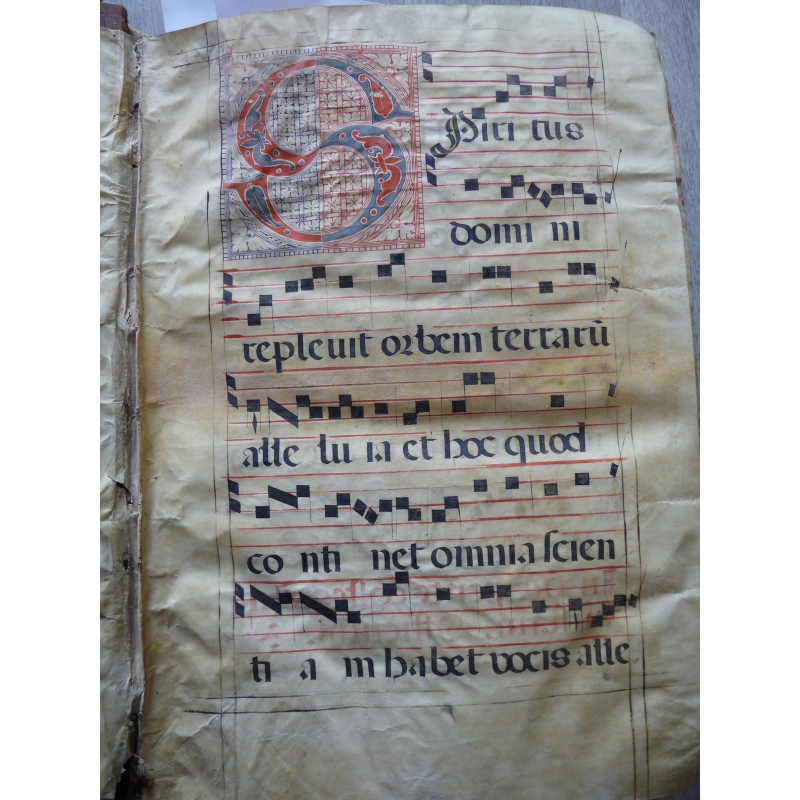 SPiri tus
domi ni
repleuit orbem terrarū
alle lu ia et hoc quod
co nti net omnia scien
ti a m habet vocis alle